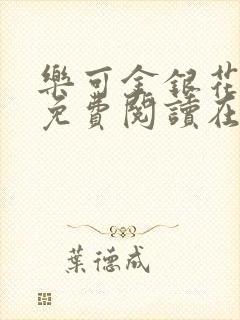 樂可金銀花
免費閱讀在
葉德成